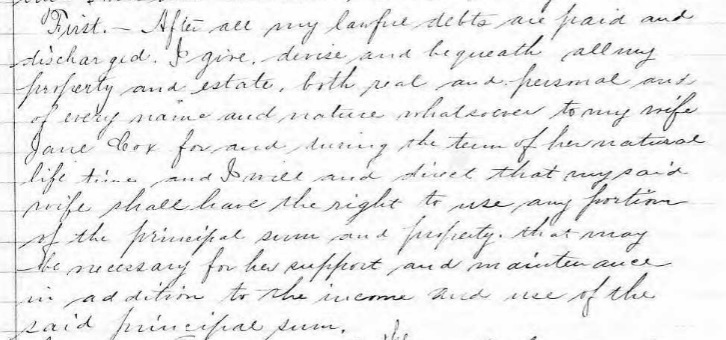 First. — After all my lawful debts are paid and
discharged. I give, devise and bequeath all my
property and estate, both real and personal and
of every name and nature whatsoever to my wife
Jane Cox for and during the term of her natural
life time and I will and direct that my said
wife shall have the right to use any portion
of the principal sum and property. that may
be necessary for her support and maintenance
in addition to the income and use of the
said principal sum.